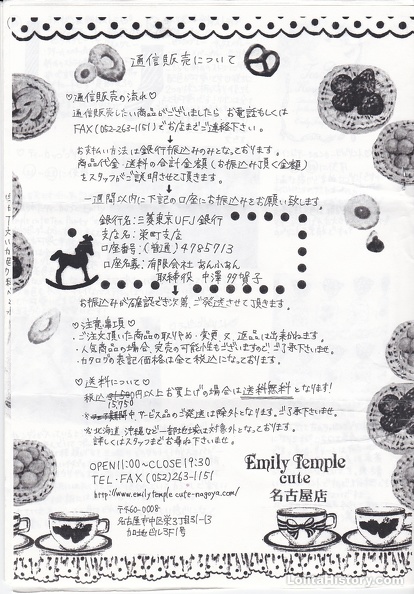 通信販売について
♡通信販売の流れ♡
通信販売したい商品がございましたら お電話もしくは
FAX(052-263-1151)でお店までご連絡下さい。
お支払い方法は銀行振込みのみとなっております。
商品代金・送料の合計金額(お振込み頂く金額)
をスタッフがご説明させて頂きます。
一週間以内に下記の口座にお振込みをお願い致します。
銀行名:三菱東京UFJ銀行
支店名:栄町支店
口座番号:(普通)4785713
口座名義:有限会社 あんふぁん
取締役 中澤
お振込みが確認でき次第、ご発送させて頂きます。
♡注意事項♡
・ご注文頂いた商品の取りやめ・変更 又 返品は出来かねます。
・人気商品の場合、完売の可能性もございますのでご了承下さいませ。
・カタログの表記価格は全て税込になっております。
♡送料について♡
税込 15,750 円以上お買上げの場合は送料無料となります!
期間中、サービス品のご発送は除外となります。ご了承下さいませ。
※北海道 沖縄など一部地域は対象外となっております。
詳しくはスタッフまでお尋ね下さいませ。
OPEN 11:00~CLOSE 19:30
TEL・FAX (052)263-1151
http://www.emilytemple-cute-nagoya.com/
〒460-0008
名古屋市中区栄3丁目31-13
ビル3F1号
Emily Temple
cute
名古屋店
LolitaHistory.com